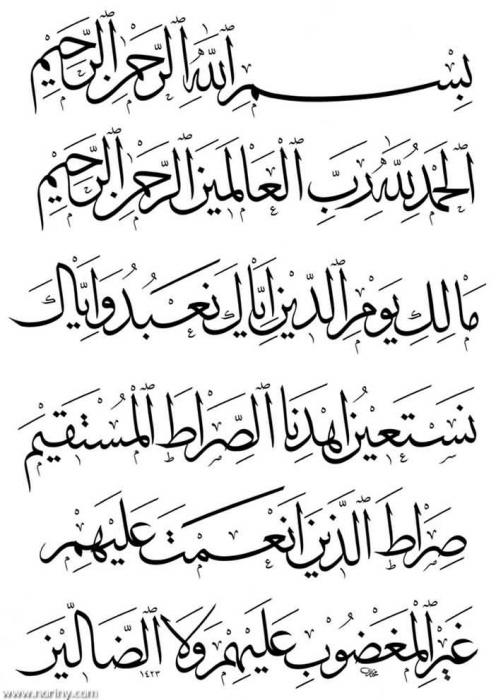 بِسْمِ ٱللَّهِ ٱلرَّحْمٰنِ ٱلرَّحِيْمِ
اَلْحَمْدُ لِلّٰهِ رَبِّ ٱلْعَالَمِيْنَ ٱلرَّحْمٰنِ ٱلرَّحِيْمِ
مَالِكِ يَوْمِ ٱلدِّيْنِ اِيَّاكَ نَعْبُدُ وَاِيَّاكَ
نَسْتَعِيْنُ اِهْدِنَا ٱلصِّرَاطَ ٱلْمُسْتَقِيْمَ
صِرَاطَ ٱلَّذِيْنَ اَنْعَمْتَ عَلَيْهِمْ
غَيْرِ ٱلْمَغْضُوْبِ عَلَيْهِمْ وَلَا ٱلضَّالِّيْنَ
١٤٢٣
www.noriny.com